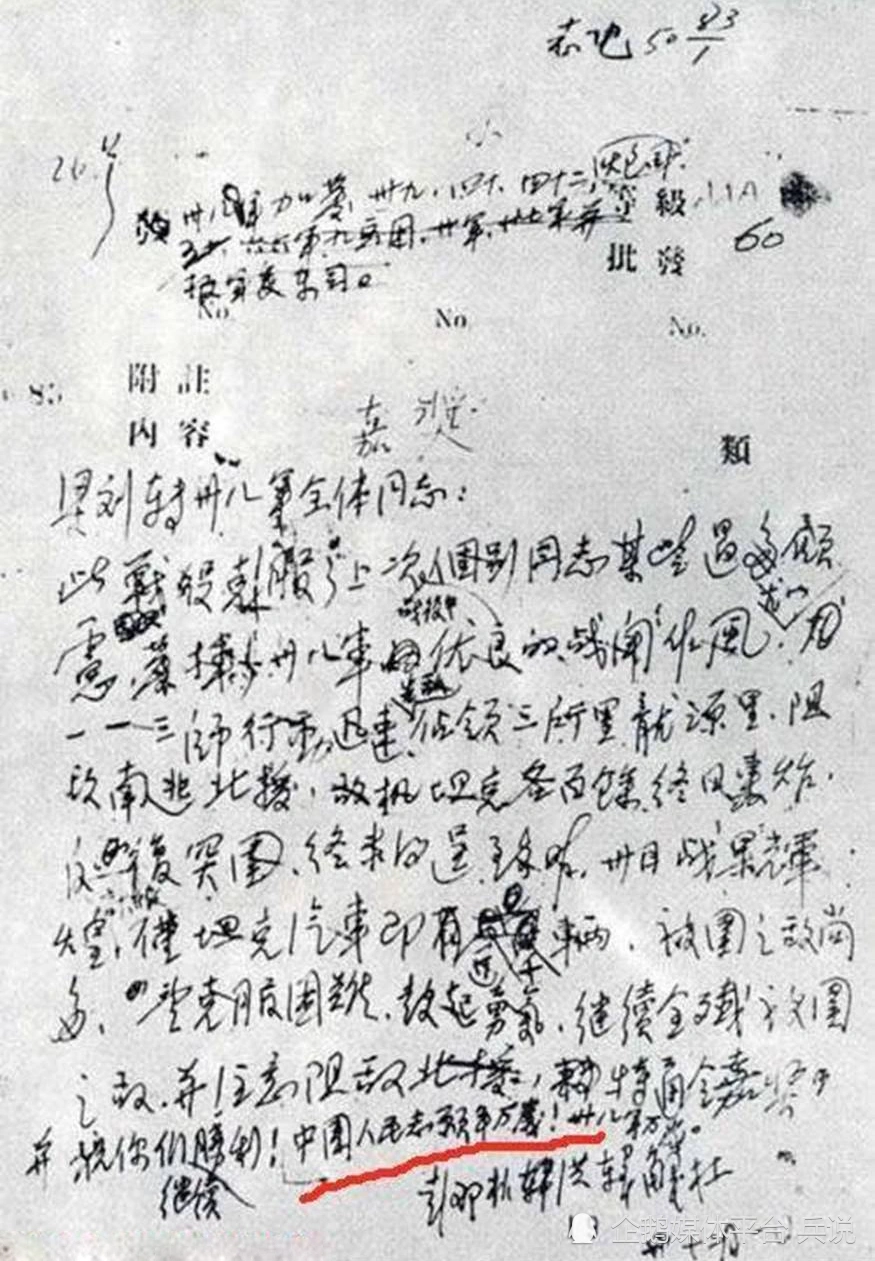 志司 50
26号
卅八军 加 卅九、四十、四十二、炮司
等級 AAA
第九兵团、
批發 60
报军委
No No No.
附註
内容 嘉奖 類
梁刘转卅八军全体同志:
此战役克服了上次个别同志某些过多顾
虑,发扬了卅八军优良的战斗作风,尤以
一一三师行动迅速,占领三所里龙源里,阻
敌南逃北援,敌机坦克各百余,终日轰炸,
反复突围,终未得逞,昨卅日战果辉
煌,仅坦克汽车即有近千辆,被围之敌尚
多,望克服困难,鼓起勇气,继续全歼被围
之敌,并注意阻敌北援,特通令嘉奖,
并祝你们继续胜利!中国人民志愿军万岁!卅八军万岁。
彭邓朴韩洪解杜
企鹅媒体平台·兵说